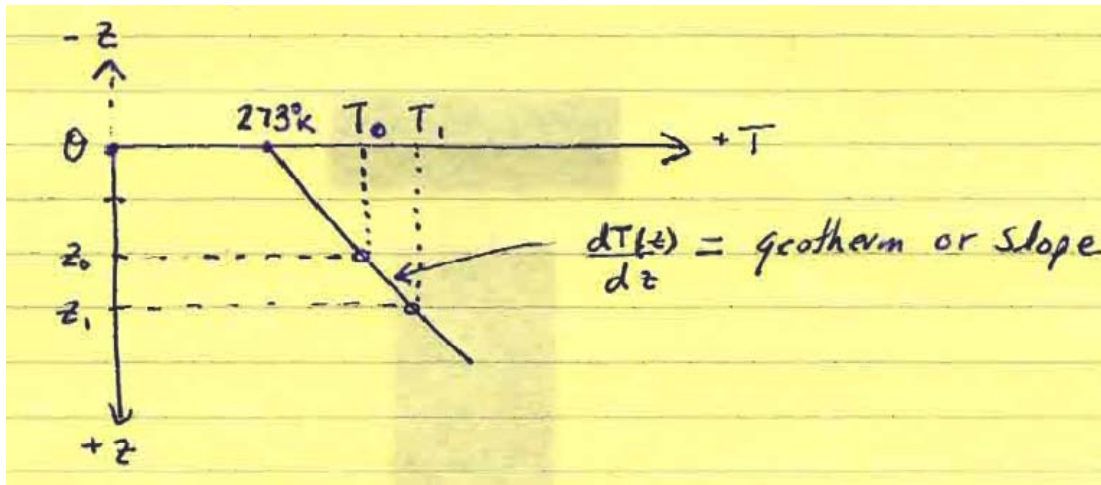 - z
273°K T₀ T₁
0 + T
z₀ dT(z)/dz = geotherm or slope
z₁
+ z